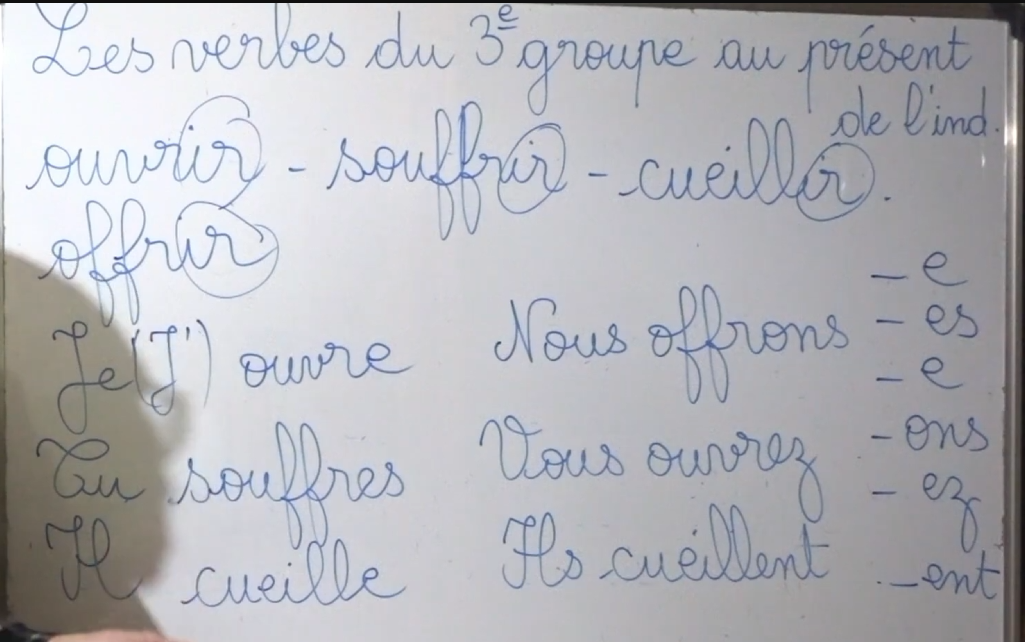 Les verbes du 3e groupe au présent
de l'ind.
ouvrir - souffrir - cueillir.
offrir
- e
Je (J') ouvre Nous offrons - es
- e
Tu souffres Vous ouvrez - ons
- ez
Il cueille Ils cueillent - ent